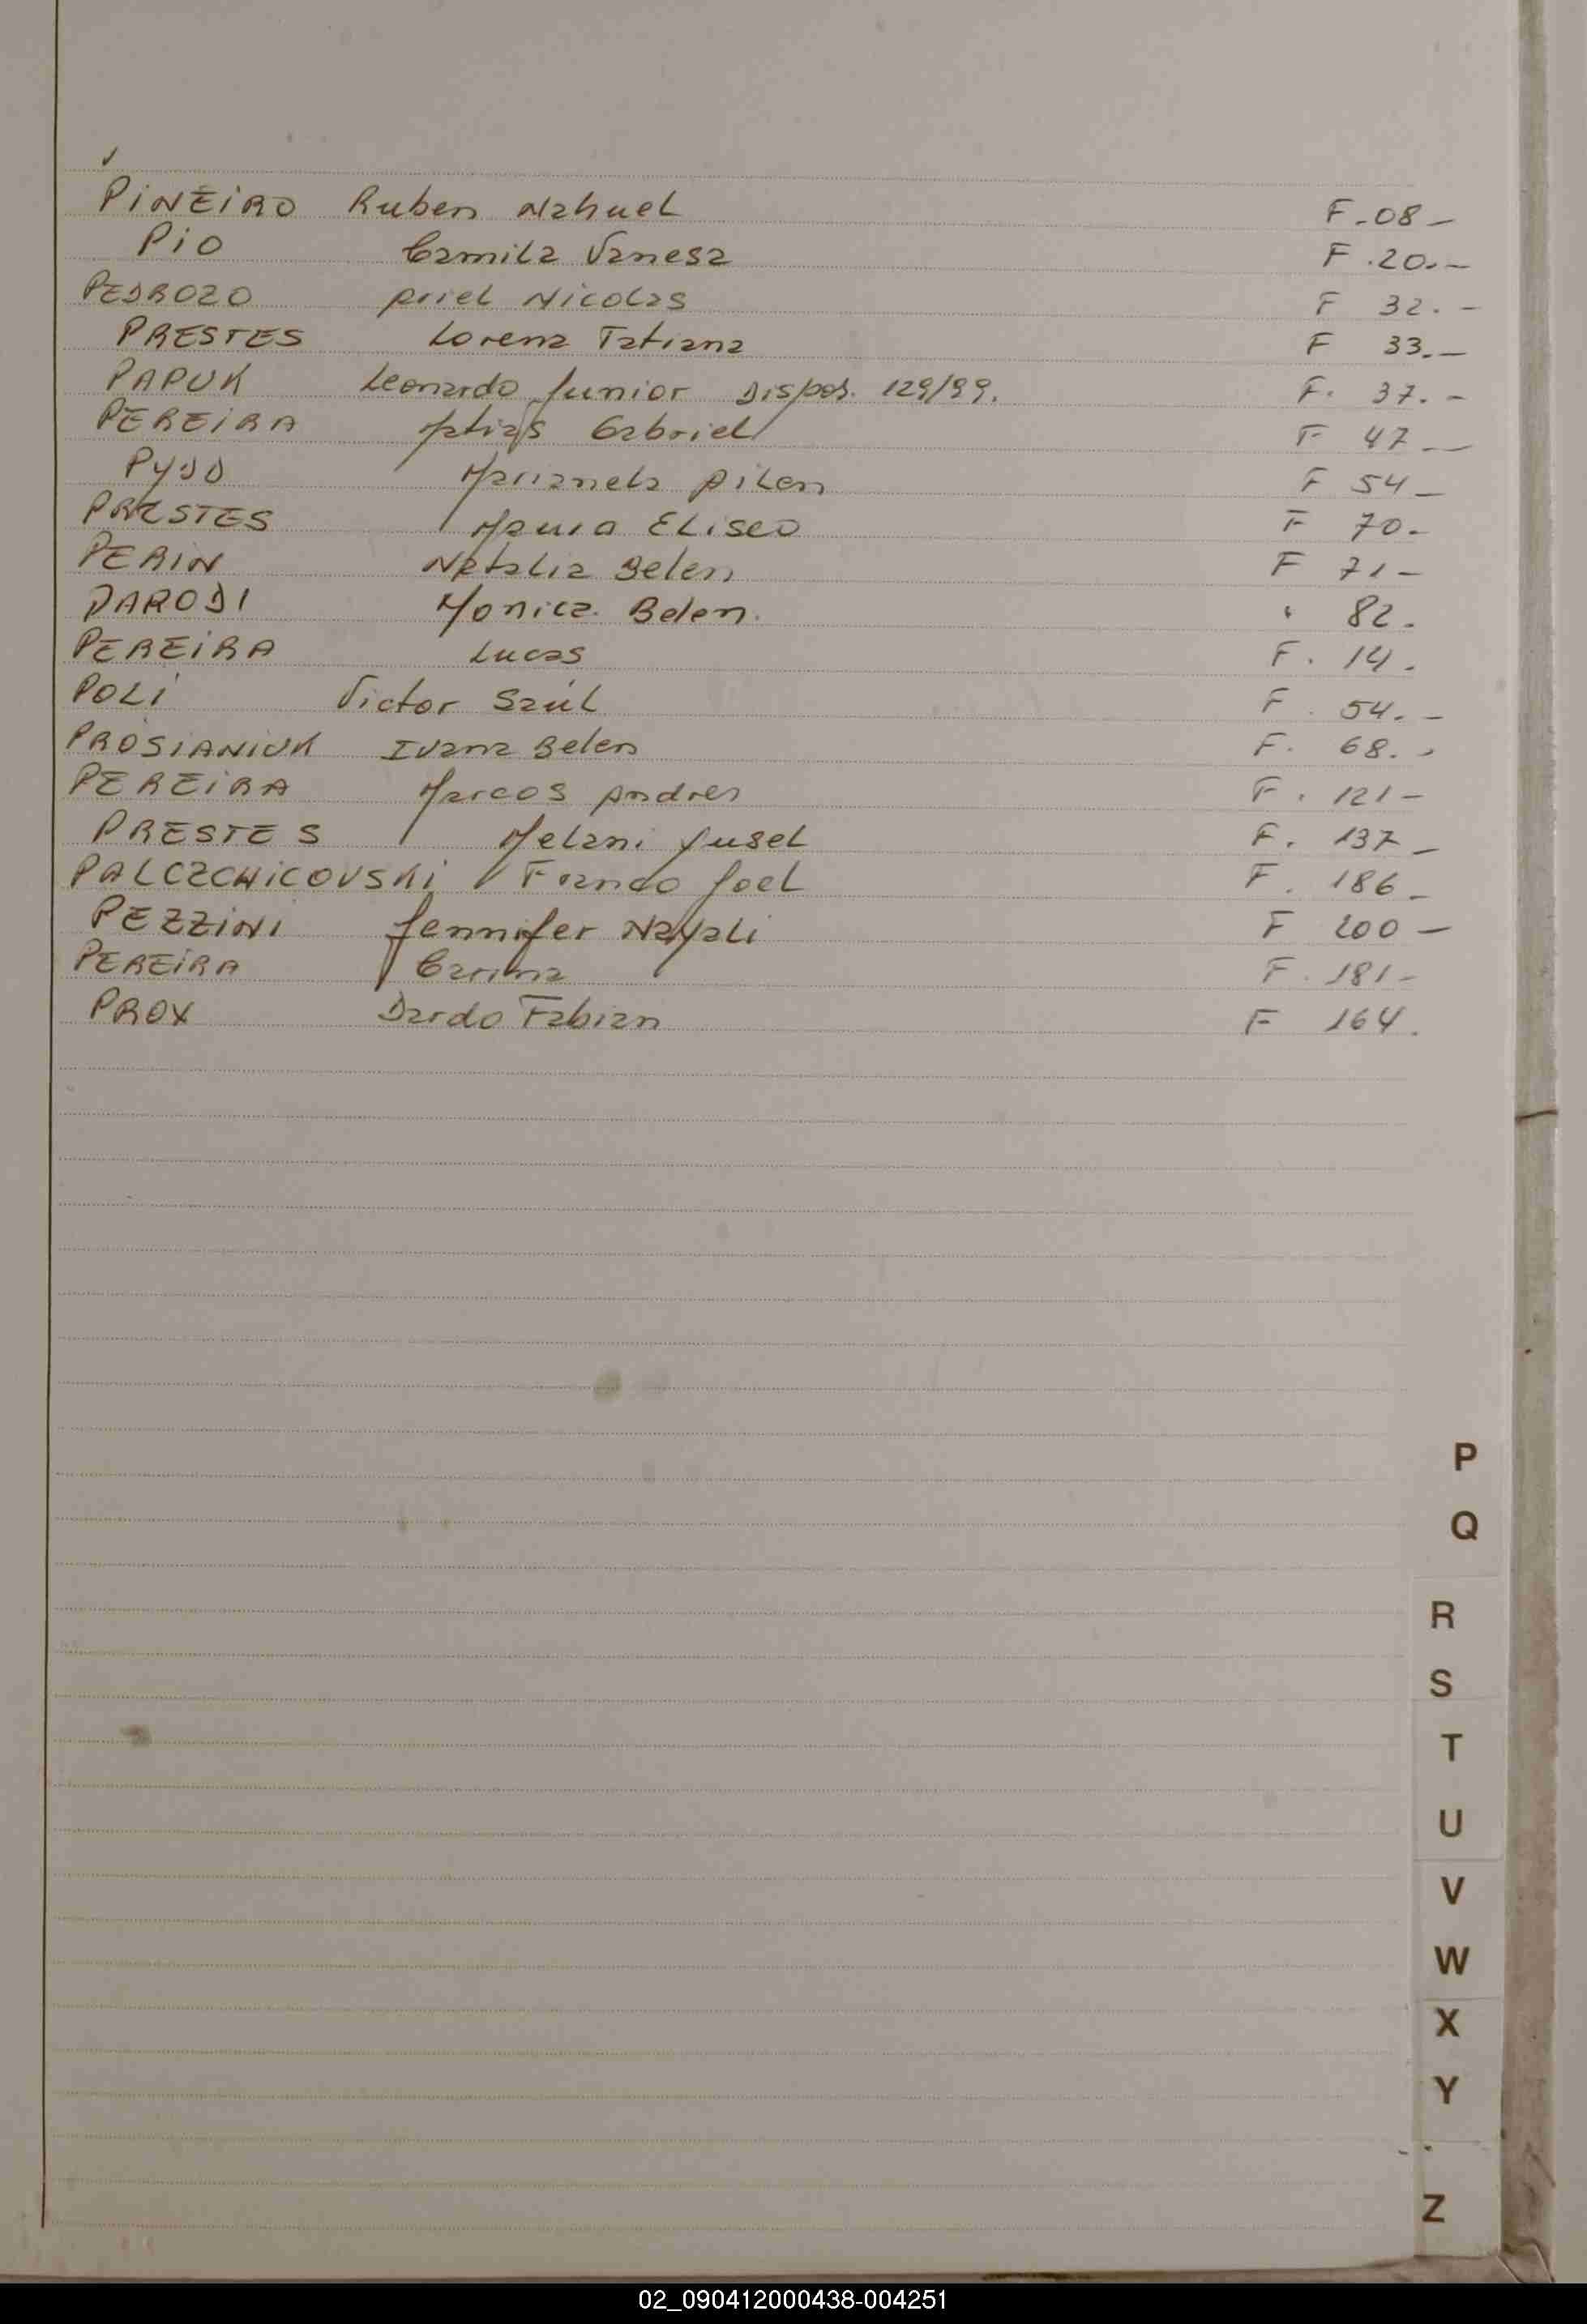 PIÑEIRO Ruben Nahuel F. 08 -
PIO Camila Vanesa F. 20. -
PEDROZO Ariel Nicolas F 32. -
PRESTES Lorena Tatiana F 33. -
PAPUK Leonardo Junior Dispos. 129/99. F. 37. -
PEREIRA Matias Gabriel F 47 -
PYDD Marianela Ailen F 54 -
PRESTES Mauro Eliseo F 70 -
PERIN Natalia Belen F 71 -
PARODI Monica Belen. " 82.
PEREIRA Lucas F. 14.
POLI Victor Saúl F. 54. -
PROSIANIUK Ivana Belen F. 68. -
PEREIRA Marcos Andres F. 121 -
PRESTES Melani Yusel F. 137 -
PALCZCHICOVSKI Franco Joel F. 186 -
PEZZINI Jennifer Nayali F 200 -
PEREIRA Carina F. 181 -
PROX Dardo Fabian F 164.
P
Q
R
S
T
U
V
W
X
Y
Z
02_090412000438-004251